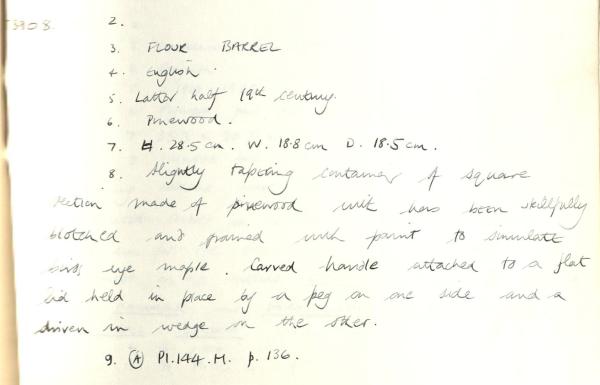 T3908.
2.
3. FLOUR BARREL
4. English.
5. Latter half 19th century.
6. Pinewood.
7. H. 28.5cm. W. 18.8cm D. 18.5cm.
8. Slightly tapering container of square
section made of pinewood has been skillfully
blotched and grained with paint to simulate
birds eye maple. Carved handle attached to a flat
lid held in place by a peg on one side and a
driven in wedge on the other.
9. Ⓐ Pl.144.H. p.136.